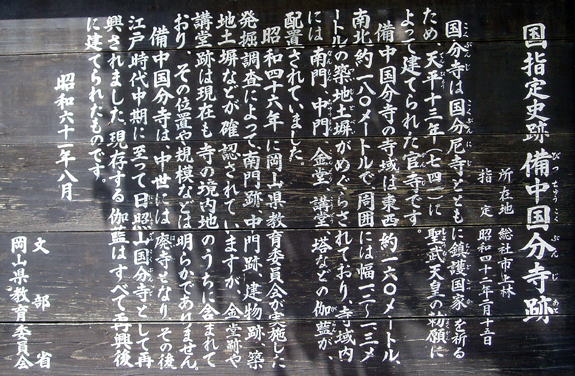 国指定史跡 備中国分寺跡
びっちゅうこくぶんじあと
所在地 総社市上林
指定 昭和四十三年二月十五日
国分寺は国分尼寺とともに鎮護国家を祈る
ため、天平十三年(七四一)に聖武天皇の勅願に
よって建てられた官寺です。
備中国分寺の寺域は東西約一六〇メートル、
南北約一八〇メートルで、周囲には幅一・二〜一・三メ
ートルの築地土塀がめぐらされており、寺域内
には南門、中門、金堂、講堂、塔などの伽藍が、
配置されていました。
昭和四十六年に岡山県教育委員会が実施した
発掘調査によって、南門跡、中門跡、建物跡、築
地土塀などが確認されていますが、金堂跡や
講堂跡は現在も寺の境内地のうちに含まれて
おり、その位置や規模などは明らかでありません。
備中国分寺は、中世には廃寺となり、その後
江戸時代中期に至って日照山国分寺として再
興されました。現存する伽藍はすべて再興後
に建てられたものです。
昭和六十一年八月
文部省
岡山県教育委員会